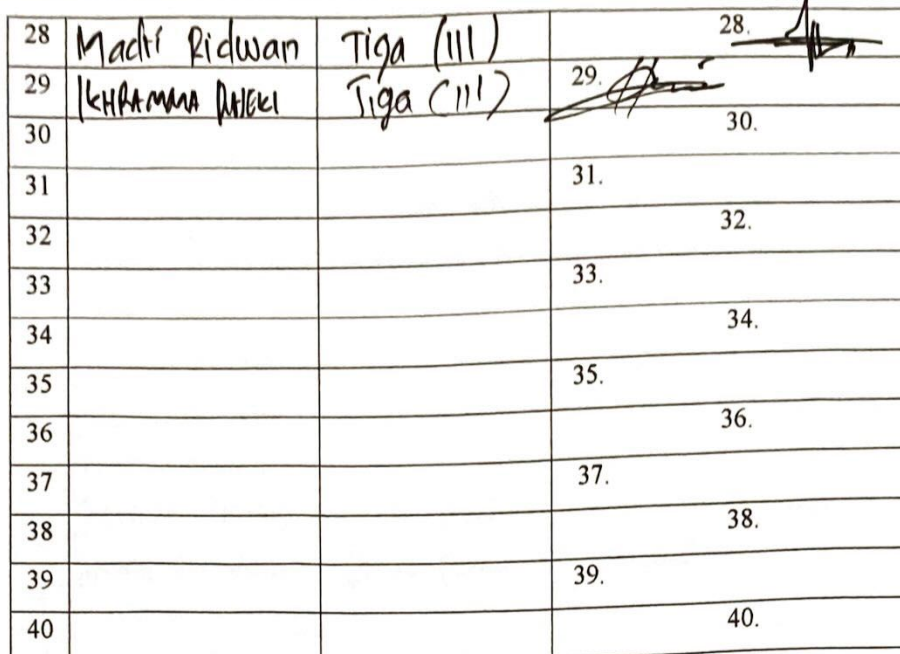 28 Madri Ridwan Tiga (III) 28.
29 IKHRAMMA RAJEKI Tiga (III) 29.
30 30.
31 31.
32 32.
33 33.
34 34.
35 35.
36 36.
37 37.
38 38.
39 39.
40 40.